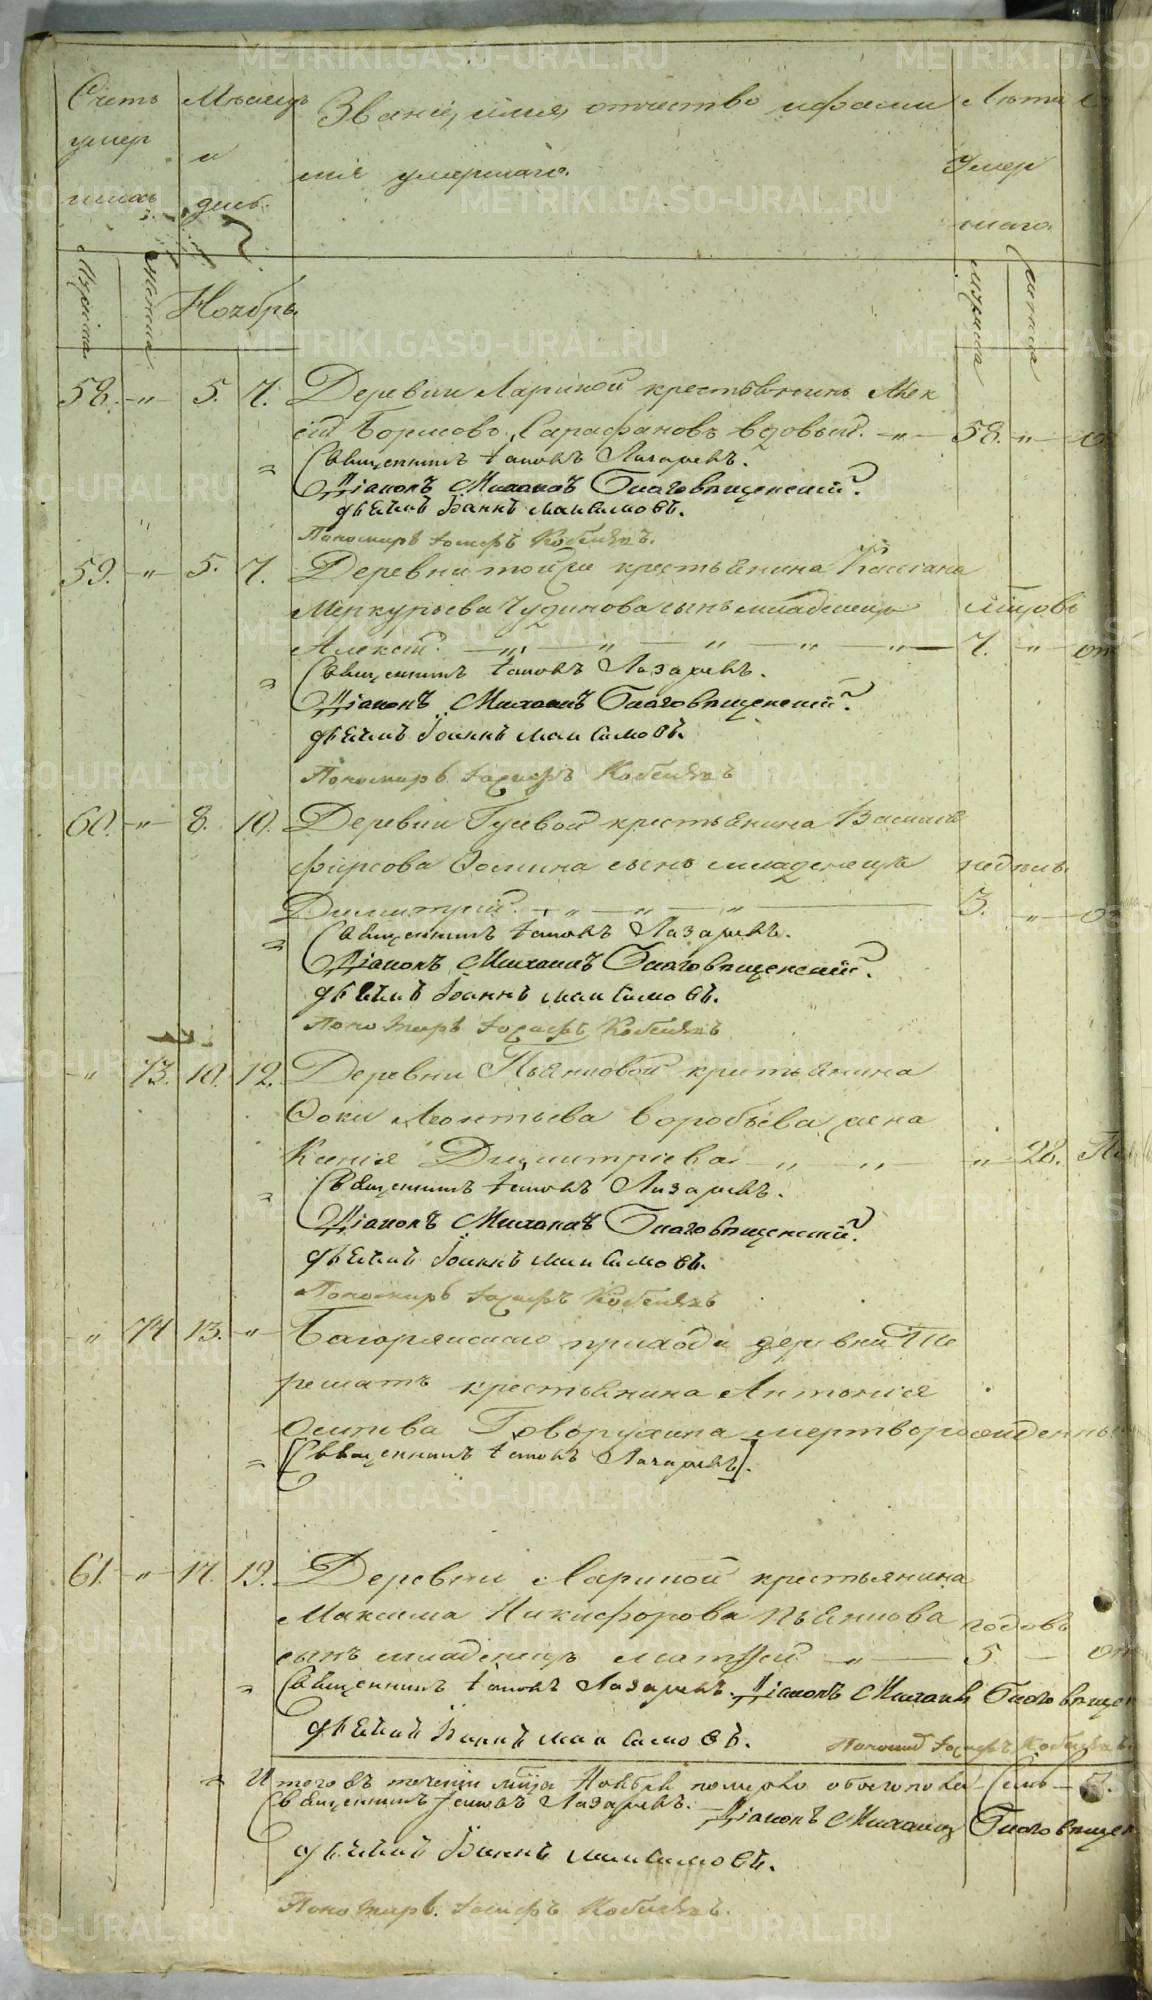 Счетъ Мѣсяцъ Званіе, имя, отчество и фами Лѣта
умер и лія умершаго. Умер
шихъ день. шаго.
Мужска Женска Ноябрь. Мужска Женска
58. -„- 5. 7. Деревни Лариной крестьянинъ Алек
сѣй Борисовъ Сарафановъ вдовый. -„- 58. -„-
Священникъ Іаковъ Лазаревъ.
Діаконъ Михаилъ Благовѣщенскій.
Дьячекъ Іоаннъ Максимовъ.
Пономарь Іосифъ Кобяковъ.
59. -„- 5. 7. Деревни той же крестьянина Кассіана
Меркурьева Чудинова сынъ младенецъ мѣсцовъ
Алексѣй. — „ — „ — „ — „ — „ — 7. -„- от
Священникъ Іаковъ Лазаревъ.
Діаконъ Михаилъ Благовѣщенскій.
Дьячекъ Іоаннъ Максимовъ.
Пономарь Іосифъ Кобяковъ
60. -„- 8. 10. Деревни Гусевой крестьянина Василія
Фирсова Фомина сынъ младенецъ недѣль
Димитрій. — „ — „ — „ — 3. -„- от
Священникъ Іаковъ Лазаревъ.
Діаконъ Михаилъ Благовѣщенскій.
Дьячекъ Іоаннъ Максимовъ.
Пономарь Іосифъ Кобяковъ
-„- 73. 10. 12. Деревни Пьянковой крестьянина
Фоки Леонтьева Воробьева жена
Ксенія Димитріева — „ — „ — „ 28.
Священникъ Іаковъ Лазаревъ.
Діаконъ Михаилъ Благовѣщенскій.
Дьячекъ Іоаннъ Максимовъ.
Пономарь Іосифъ Кобяковъ
-„- 74 13. -„- Багарякскаго прихода деревни
крестьянина Антонія
Осипова Говорухина мертворожденный
Священникъ Іаковъ Лазаревъ.
61. -„- 17. 19. Деревни Лариной крестьянина
Максима Никифорова Пьянкова годовъ
сынъ младенецъ Матвей -„- 5. — от
Священникъ Іаковъ Лазаревъ. Діаконъ Михаилъ Благовѣщен
Дьячекъ Іоаннъ Максимовъ. Пономарь Іосифъ Кобяковъ.
Итого въ теченіи мѣсца Ноября померло обоего пола Семь — 7.
Священникъ Іаковъ Лазаревъ. — Діаконъ Михаилъ Благовѣщен
Дьячекъ Іоаннъ Максимовъ.
Пономарь. Іосифъ Кобяковъ.
METRIKI.GASO-URAL.RU